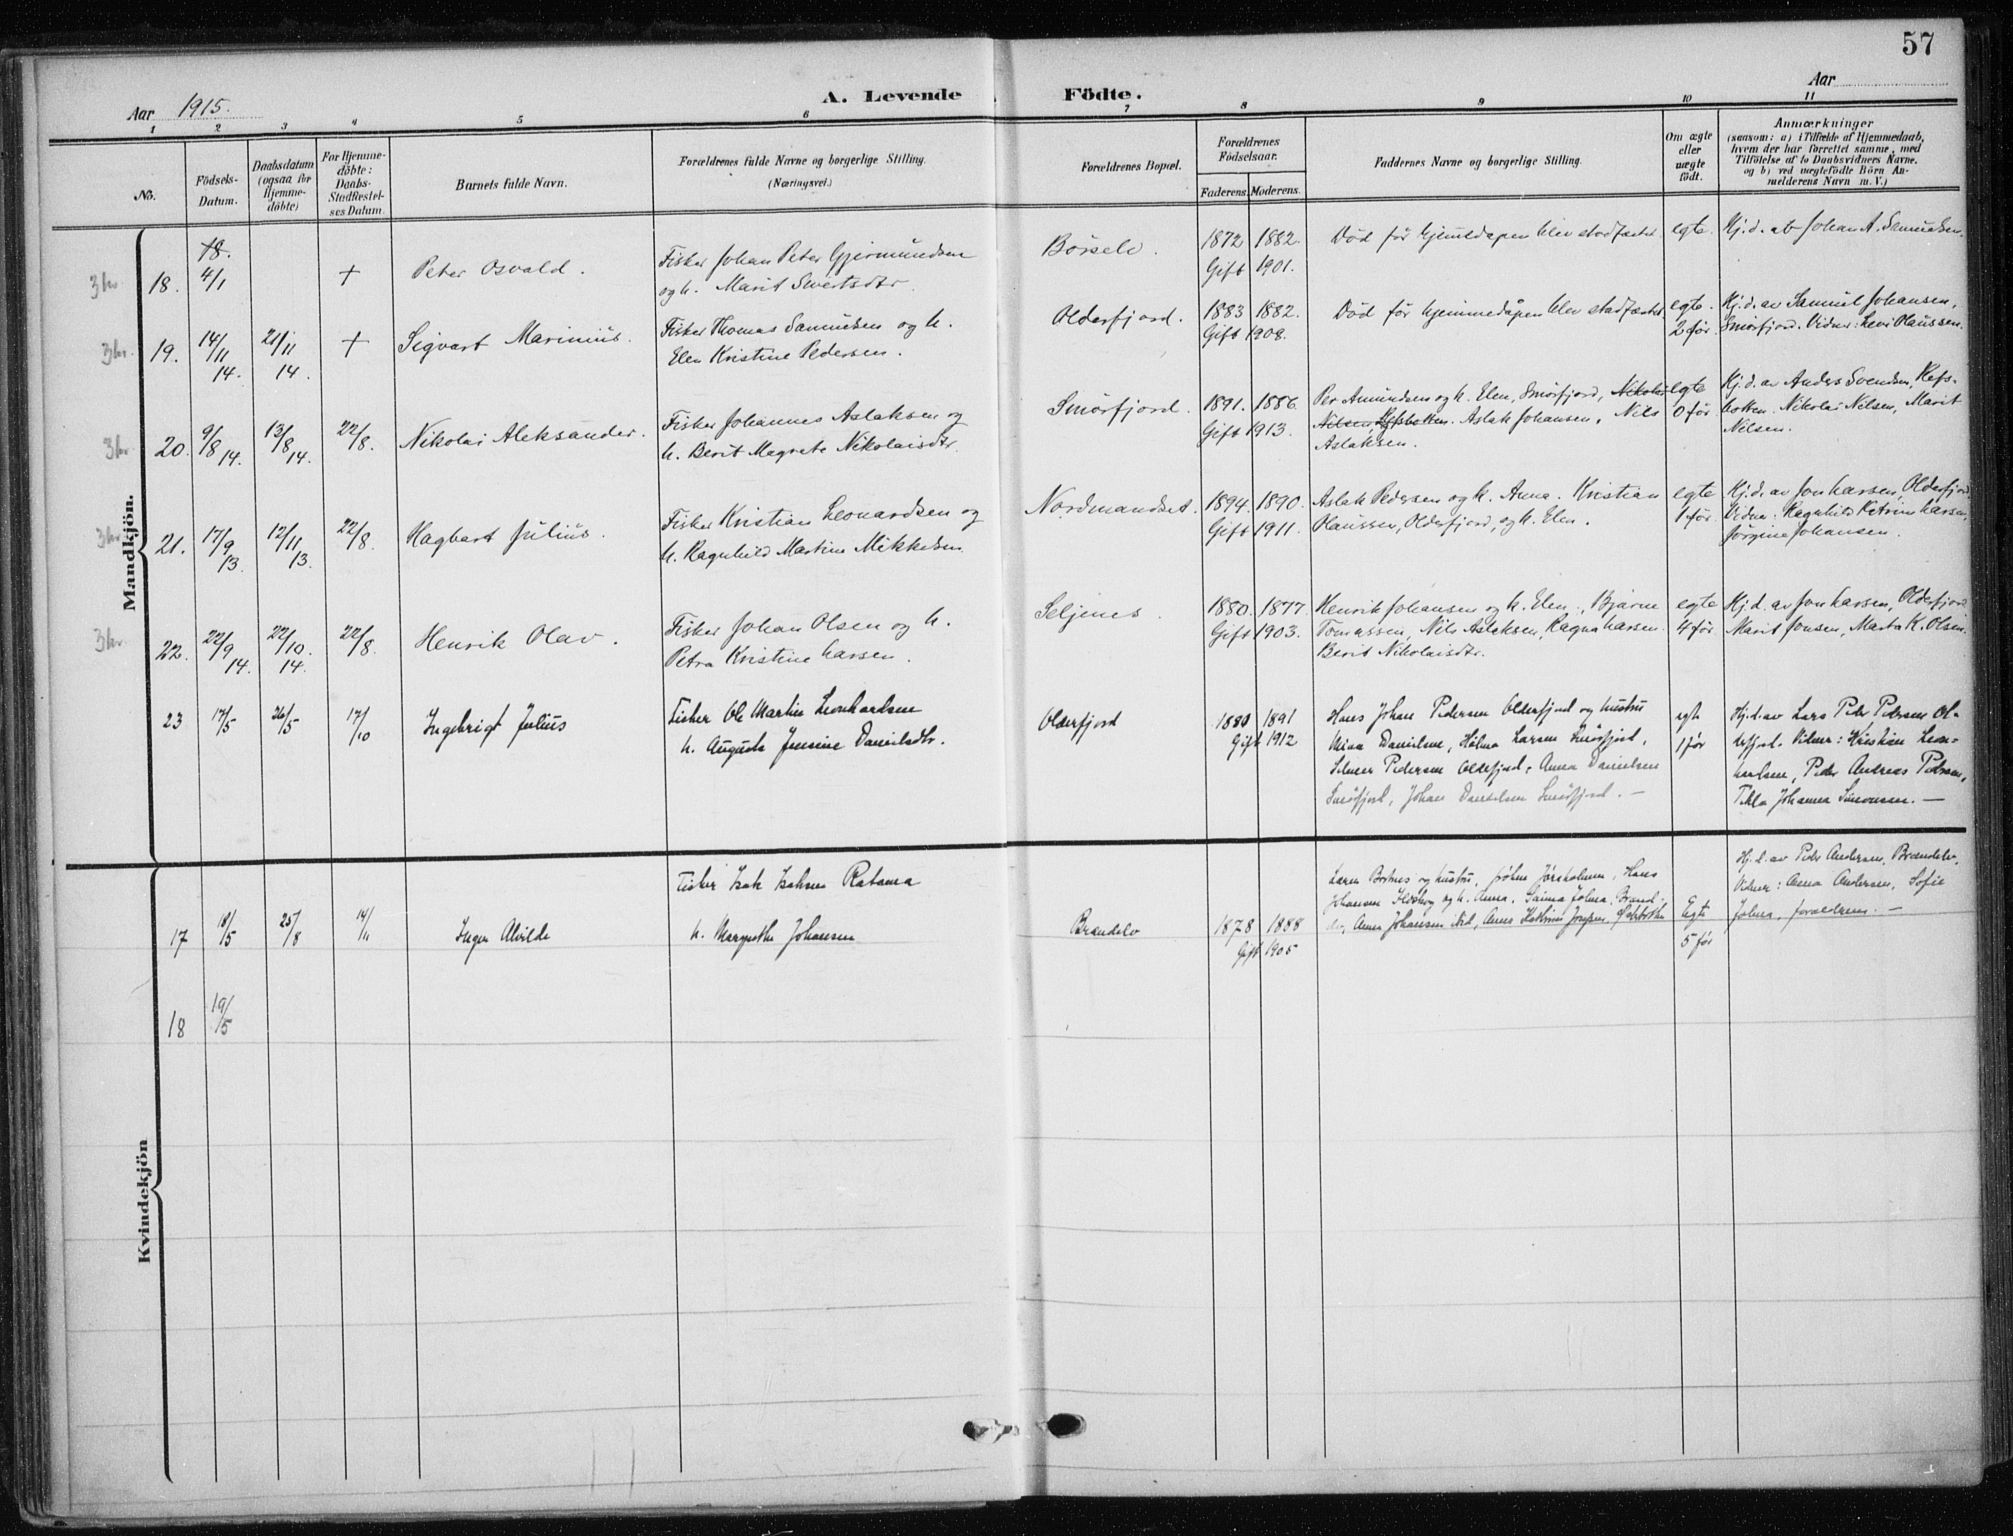 57
Aar 1915.
A. Levende Födte.
Aar
1 2 3 4 5 6 7 8 9 10 11
No.
Födsels-Datum.
Daabsdatum (ogsaa för Hjemme-döbte)
For Hjemme-döbte: Daabs-Stadfæstel-ses Datum.
Barnets fulde Navn.
Forældrenes fulde Navne og borgerlige Stilling.
(Næringsvei.)
Forældrenes Bopæl.
Forældrenes Födselsaar.
Faderens. Moderens.
Faddernes Navne og borgerlige Stilling.
Om ægte eller uægte födt.
Anmærkninger
(saasom: a) i Tilfælde af Hjemmedaab,
hvem der har forrettet samme, med
Tilföielse af to Daabsvidners Navne.
og b) ved uægtefödte Börn An-
melderens Navn m. V.)
Mandkjön.
18. 4/1 + Peter Osvald.
Fisker Johan Peter Gjermundsen
og h. Marit Sivertsdtr.
Börselv. 1872 1882. Gift 1901.
Död för hjemmedåpen blev stadfæstet
egte. Hj.d. av Johan A. Samuelsen.
19. 14/11 14. 21/11 14. + Sigvart Marinius.
Fisker Thomas Samuelsen og h.
Elen Kristine Pedersen.
Olderfjord. 1883 1882. Gift 1908.
Död för hjemmedåpen blev stadfæstet
egte. 2 för
Hj.d. av Samuel Johansen,
Smörfjord. Vidner: Levi Olaussen.
20. 9/8 14. 13/8 14. 22/8. Nikolai Aleksander.
Fisker Johannes Aslaksen og
h. Berit Magrete Nikolaisdtr.
Smörfjord. 1891. 1886. Gift 1913.
Per Amundsen og h. Elen, Smörfjord, Nikolai
Nilsen, Refsbotten. Aslak Johansen, Nils
Aslaksen.
egte 0 för
Hj.d. av Anders Svendsen, Refs-
botten. Nikolai Nilsen, Marit
Nilsen.
21. 17/9 13. 12/11 13. 22/8. Hagbart Julius.
Fisker Kristian Leonardsen og
h. Ragnhild Martine Mikkelsen.
Nordmandset. 1894. 1890. Gift 1911.
Aslak Pedersen og h. Anna. Kristian
Olaussen, Olderfjord, og h. Elen.
egte 1 för.
Hj.d. av Jon Larsen, Olderfjord
Vidner: Ragnhild Katrine Larsen,
Jörgine Johansen.
22. 22/9 14. 22/10. 14. 22/8. Henrik Olav.
Fisker Johan Olsen og h.
Petra Kristine Larsen.
Seljenes. 1880. 1877. Gift 1903.
Henrik Johansen og h. Elen., Bjarne
Tomassen, Nils Aslaksen, Ragna Larsen.
Berit Nikolaisdtr.
egte 4 för.
Hj.d. av Jon Larsen, Olderfjord
Marit Jonsen, Marta K. Olsen.
23 17/5 26/5 17/10 Ingebrigt Julius
Fisker Ole Martin Leonhardsen
h. Augusta Jensine Danielsdtr.
Olderfjord 1880 1891 Gift 1912
Hans Johan Pedersen Olderfjord og hustru
Mina Danielsen, Helma Larsen Smörfjord,
Pedersen Olderfjord, Anna Danielsen
Smörfjord, Johan Danielsen Smörfjord. —
egte 1 för
Hj.d. av Lars Peder Pedersen Ol-
derfjord. Vidner: Kristian Leon-
hardsen, Peder Andreas Pedersen,
Tekla Johanna Simonsen. —
Kvindekjön
17 18/5 25/8 14/11 Inger Alvilde
Fisker Isak Isaksen Ratama
h. Margrethe Johansen
Brændelv 1878 1888 Gift 1905
og hustru, Hans
Johansen og h. Anna, Brænd-
elv, Anna Johansen
Egte 5 för
Hj.d. av Peder Andersen, Brændelv.
Vidner: Anna Andersen, Sofie
forældrene. —
18 19/5